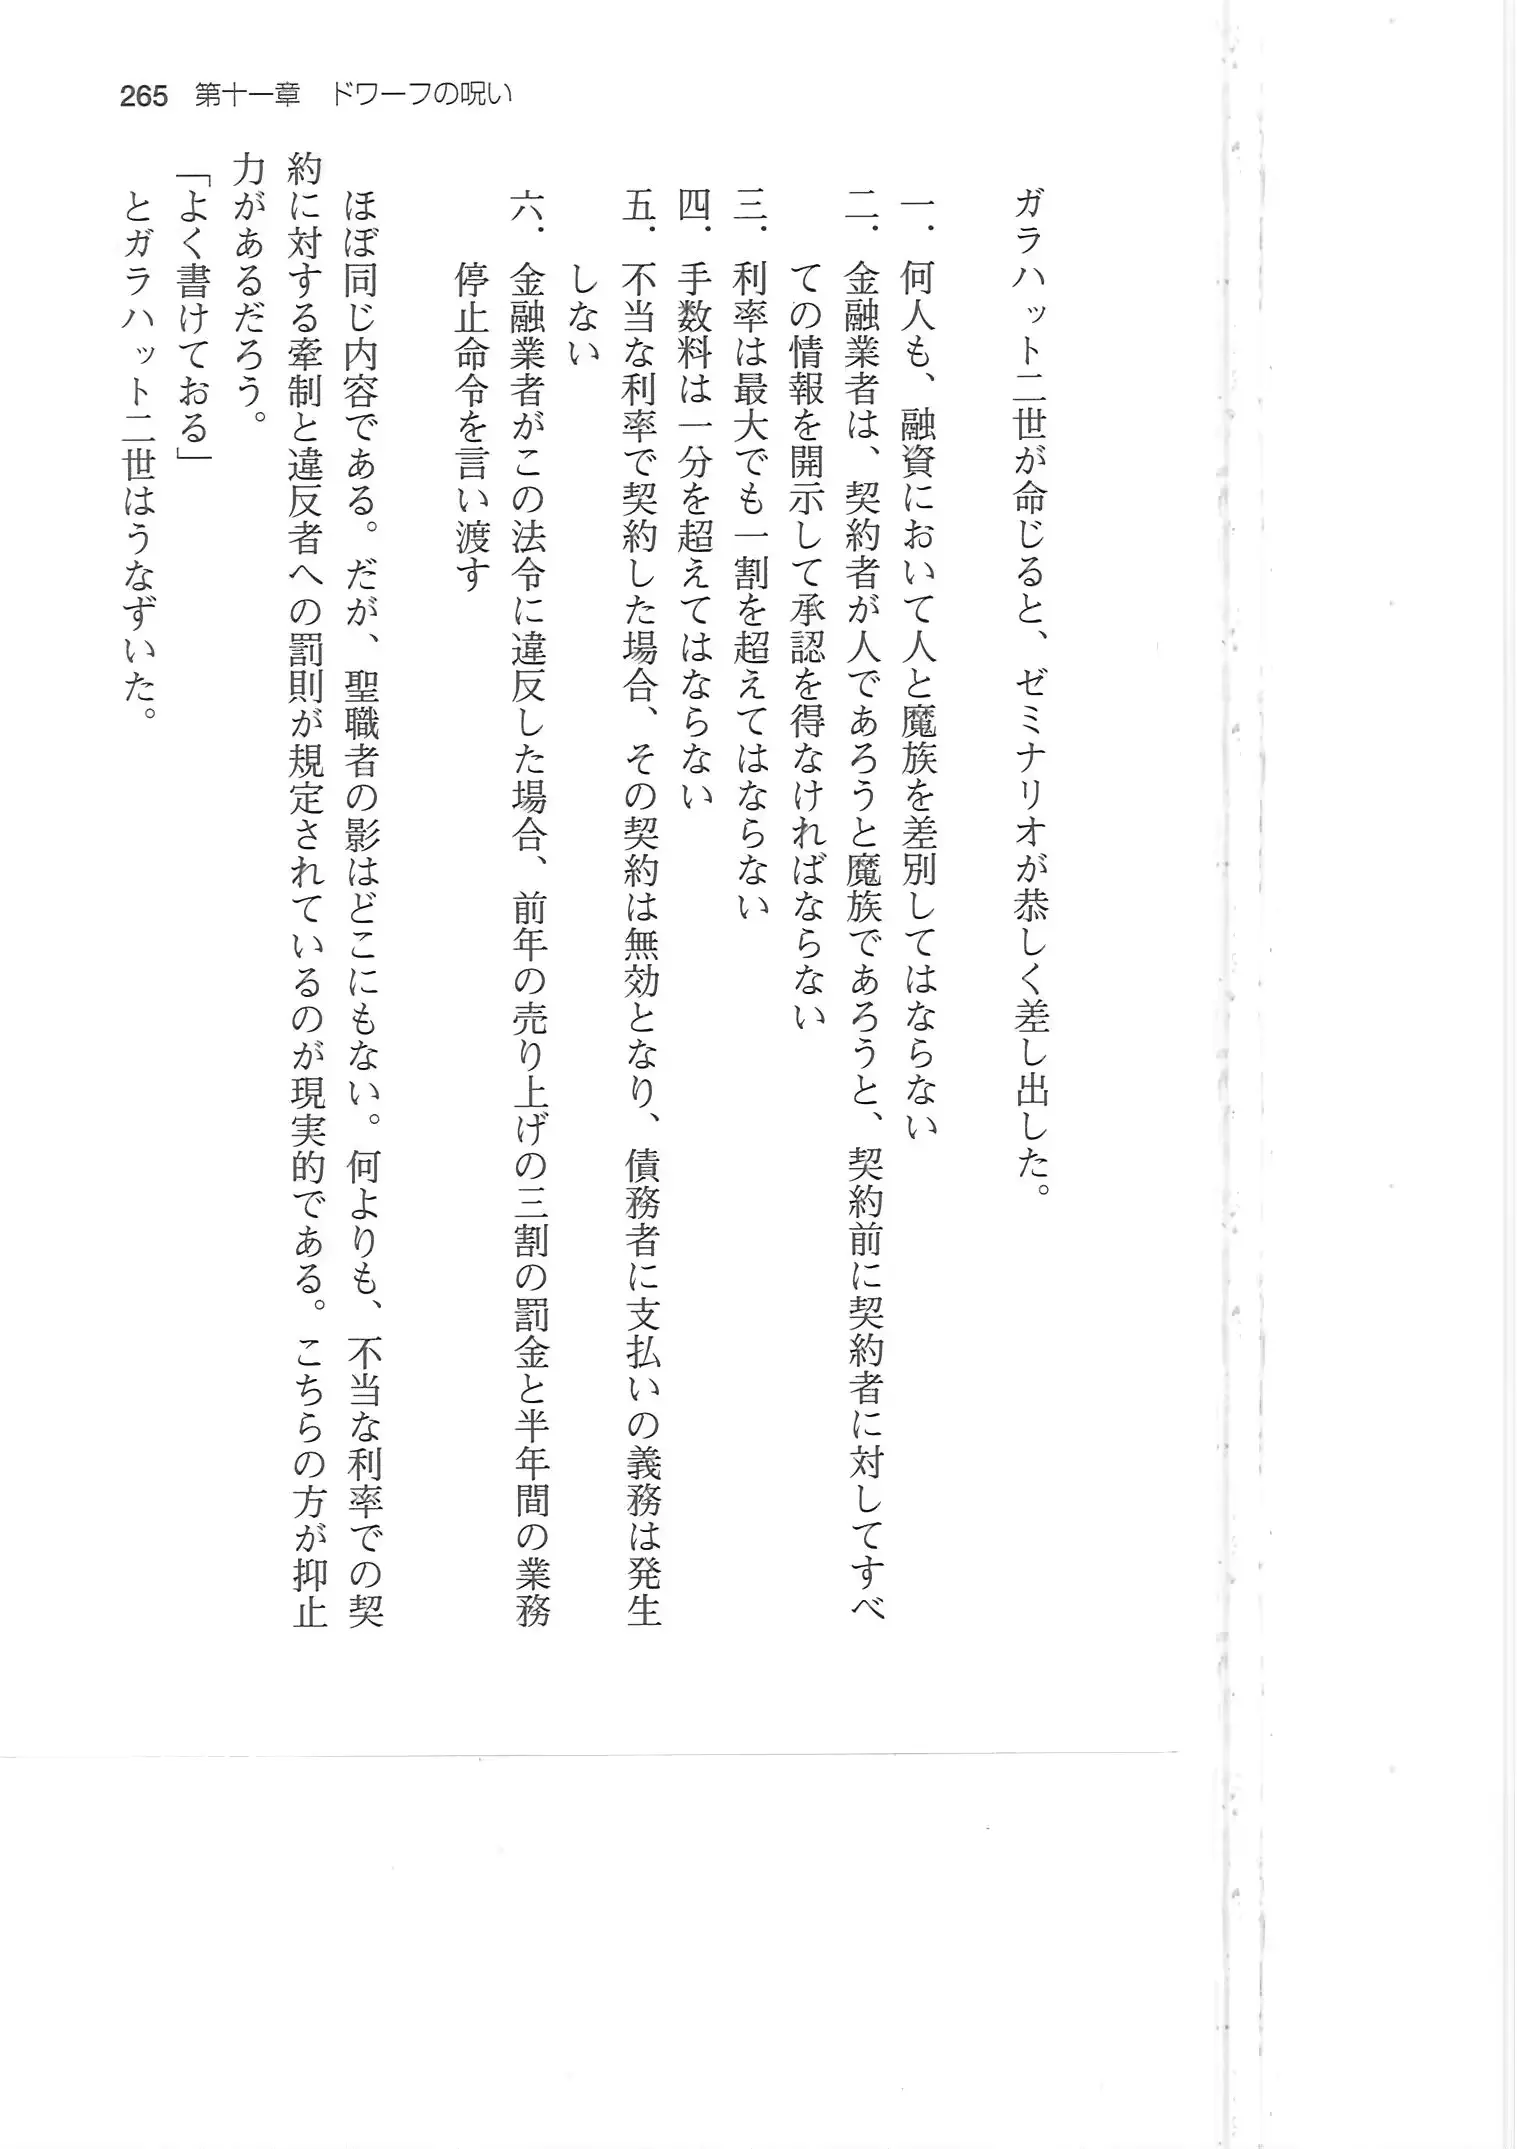 265 第十一章 ドワーフの呪い
ガラハット二世が命じると、ゼミナリオが恭しく差し出した。
一．何人も、融資において人と魔族を差別してはならない
二．金融業者は、契約者が人であろうと魔族であろうと、契約前に契約者に対してすべ
ての情報を開示して承認を得なければならない
三．利率は最大でも一割を超えてはならない
四．手数料は一分を超えてはならない
五．不当な利率で契約した場合、その契約は無効となり、債務者に支払いの義務は発生
しない
六．金融業者がこの法令に違反した場合、前年の売り上げの三割の罰金と半年間の業務
停止命令を言い渡す
ほぼ同じ内容である。だが、聖職者の影はどこにもない。何よりも、不当な利率での契
約に対する牽制と違反者への罰則が規定されているのが現実的である。こちらの方が抑止
力があるだろう。
「よく書けておる」
とガラハット二世はうなずいた。